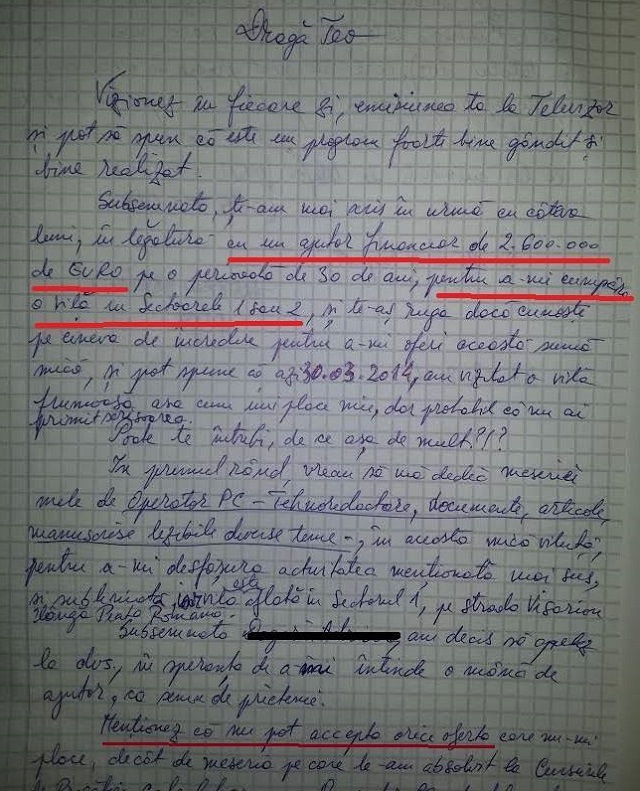 Dragă Teo
Vizionez în fiecare zi, emisiunea ta la Televizor
și pot să spun că este un program foarte bine gândit și
bine realizat.
Subsemnata, te-am mai scris în urmă cu câteva
luni, în legătură cu un ajutor financiar de 2.600.000
de EURO pe o perioadă de 30 de ani, pentru a-mi cumpăra
o vilă în Sectoarele 1 sau 2, și te-aș ruga dacă cunoști
pe cineva de încredere pentru a-mi oferi această sumă
mică, și pot spune că azi 30.03.2014, am vizitat o vilă
frumoasă, așa cum îmi place mie, dar probabil că nu ai
primit scrisoarea.
Poate te întrebi, de ce așa de mult?!?
În primul rând, vreau să mă dedic meseriei
mele de Operator PC - Tehnoredactare, documente, articole,
manuscrise lizibile diverse teme -, în această mică viluță,
pentru a-mi desfășura activitatea menționată mai sus,
și sublimata vila este aflată în Sectorul 1, pe strada Visarion
lângă Piața Romană.
Subsemnata am decis să apelez
la dvs., în speranța de a-mi întinde o mână de
ajutor, ca semn de prietenie.
Menționez că nu pot accepta orice ofertă care nu-mi
place, decât de meseria pe care le-am absolvit la Cursurile